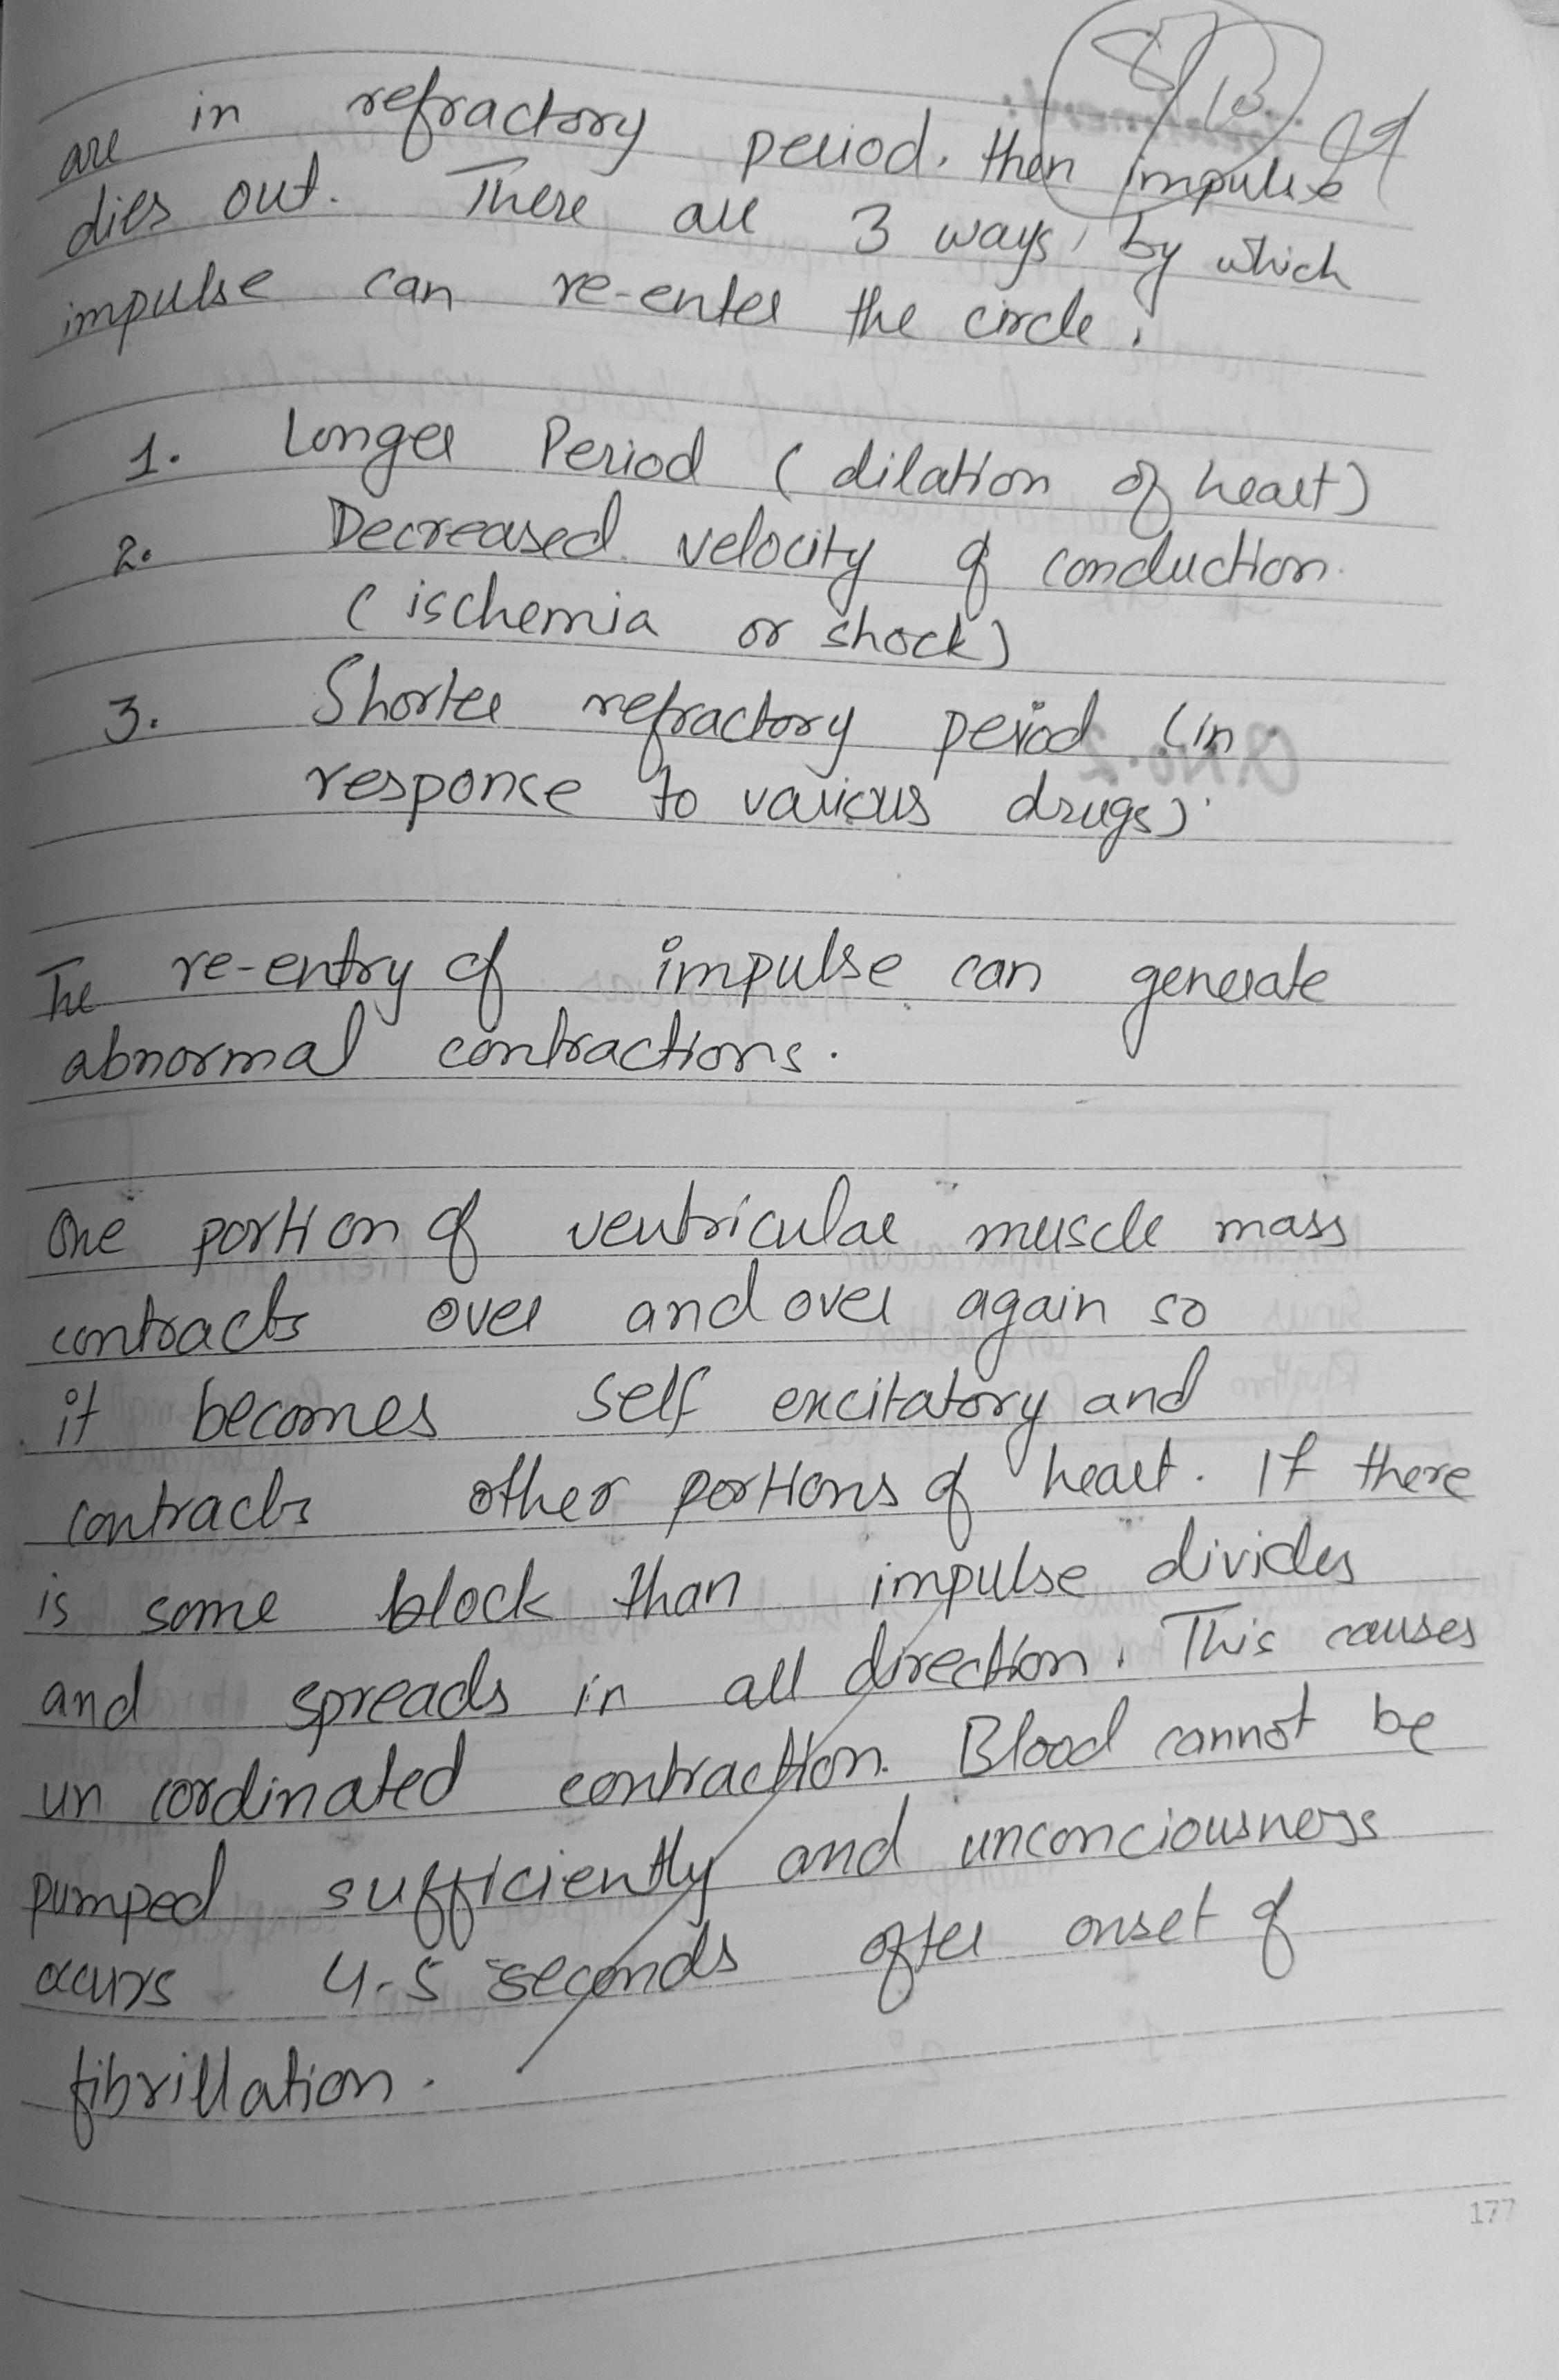 are in refractory period. then impulse
dies out. There are 3 ways, by which
impulse can re-enter the circle.
1. Longer Period (dilation of heart)
2. Decreased velocity of conduction.
(ischemia or shock)
3. Shorter refractory period (in
responce to various drugs).
The re-entry of impulse can generate
abnormal contractions.
One portion of ventricular muscle mass
contracts over and over again so
it becomes self excitatory and
contracts other portions of heart. If there
is some block than impulse divides
and spreads in all direction. This causes
un cordinated contraction. Blood cannot be
pumped sufficiently and unconciousness
occurs 4-5 seconds after onset of
fibrillation.
177